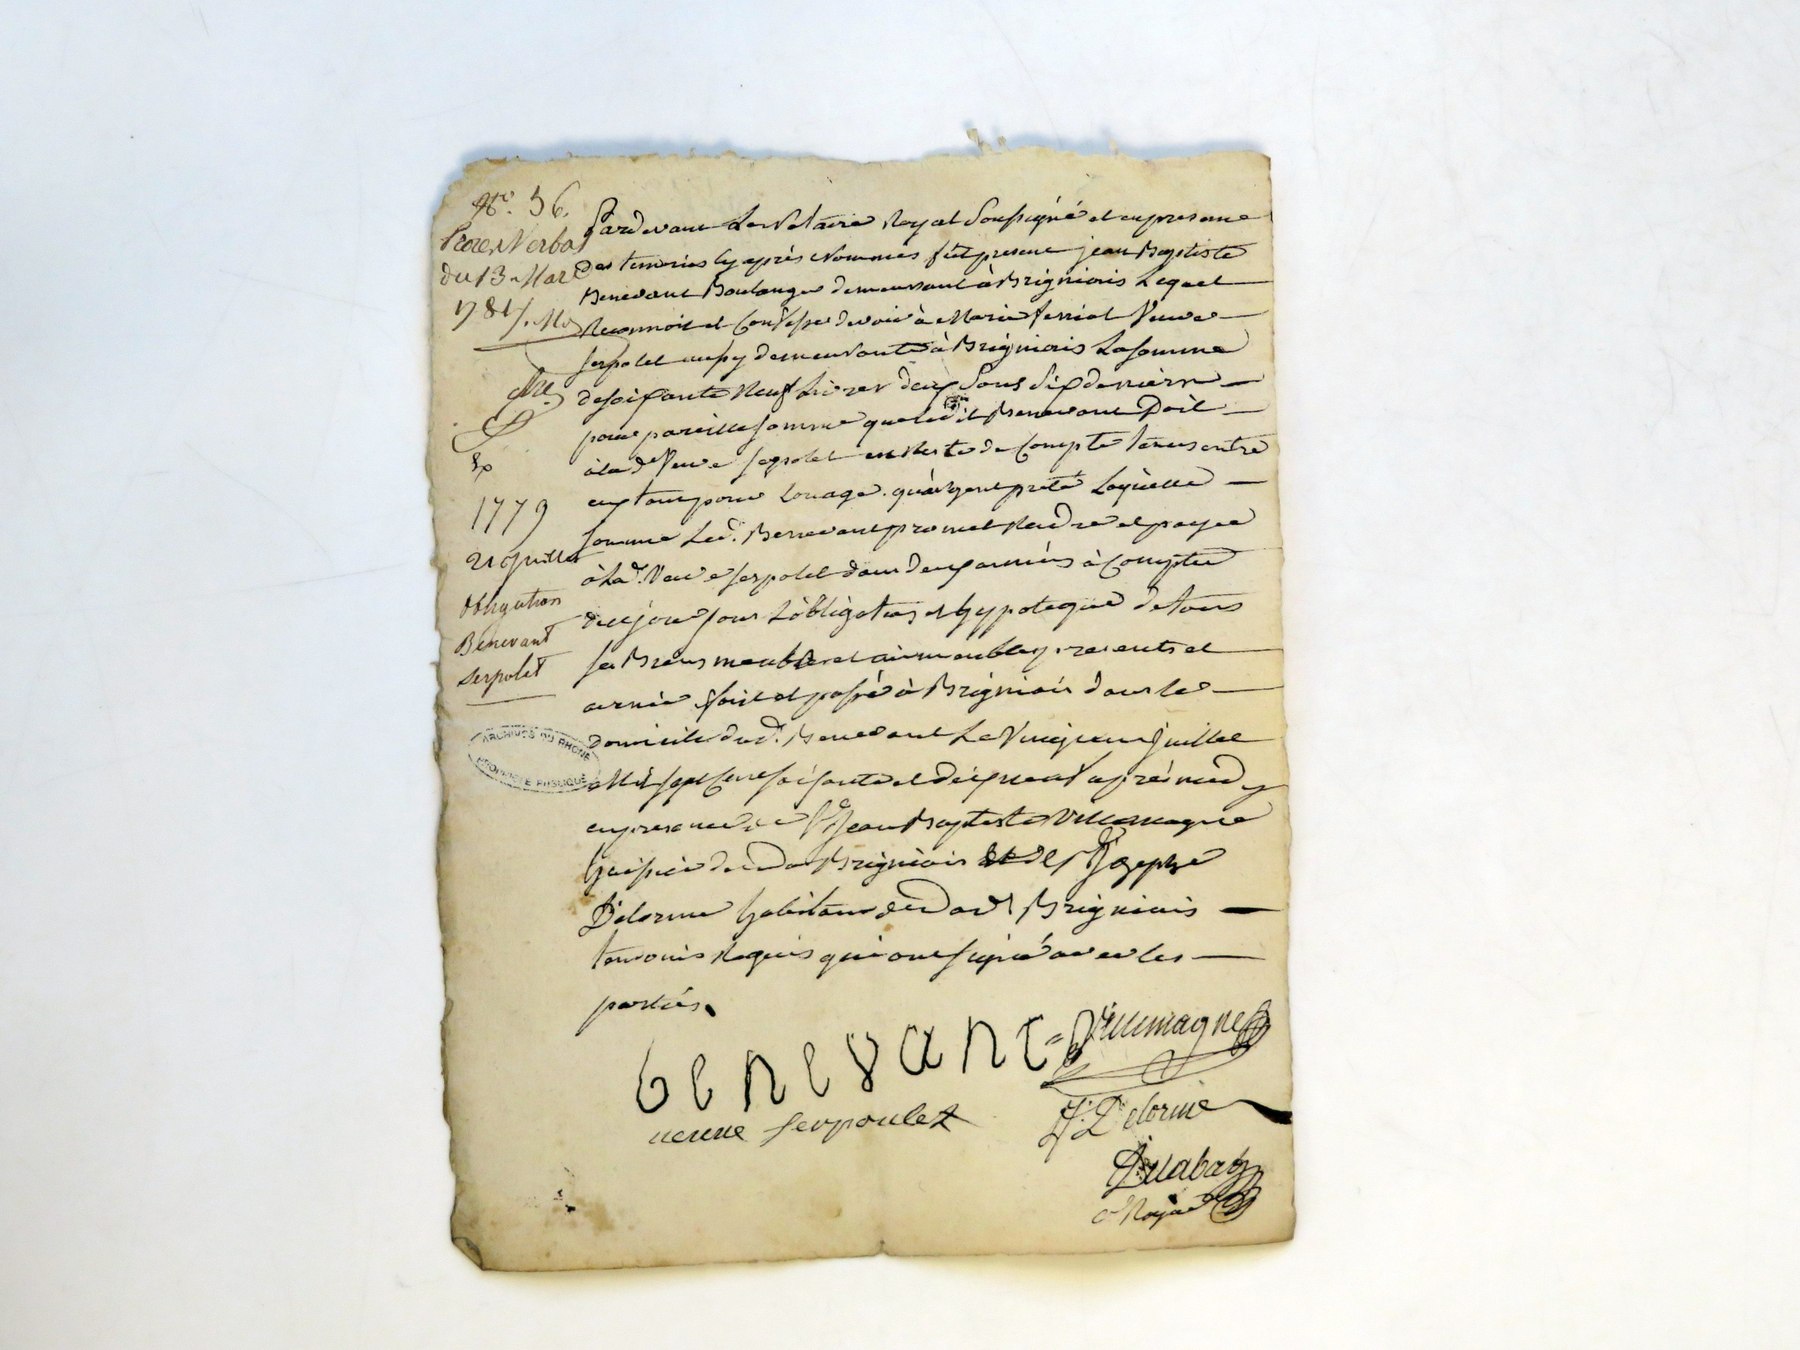 N.° 36.
Proces Verbal
du 13 Mars
1781
1779
21 Juillet
Obligation
Benevant
Serpolet
ARCHIVES DU RHONE
PROPRIÉTÉ PUBLIQUE
Pardevant Le Notaire Royal Soussigné et en presence
des temoins cy après Nommés fut present jean Baptiste
Benevant Boulanger demeurant à Brigniais Lequel
Reconnoit et Confesse devoir à Marie ferriol Veuve
serpolet aussy demeurante à Brigniais La somme
de soixante Neuf Livres deux Sous Six deniers
pour pareille somme que ledit Benevant Doit
à la d.e Veuve serpolet en Reste de Compte tenus entre
eux tant pour Louage qu'argent prêté Laquelle
somme Led. Benevant promet Rendre et payer
à La d. Veuve serpolet dans deux années à Compter
de ce jour sous L'obligation et hypoteque de tous
ses Biens meubles et immeubles presents et
avenir fait et passé à Brigniais dans le
Domicile dud. Benevant Le Vingt un Juillet
Mil sept Cent soixante et dix neuf après midy
en presence de S.r Jean Baptiste Villemagne
huissier dud. Brigniais et de S.r Joseph
Delorme habitant dud. Brigniais
temoins Requis qui ont signé avec les
parties.
benevant
Villemagne
veuve serpoulet
J. Delorme
Nore
Royal